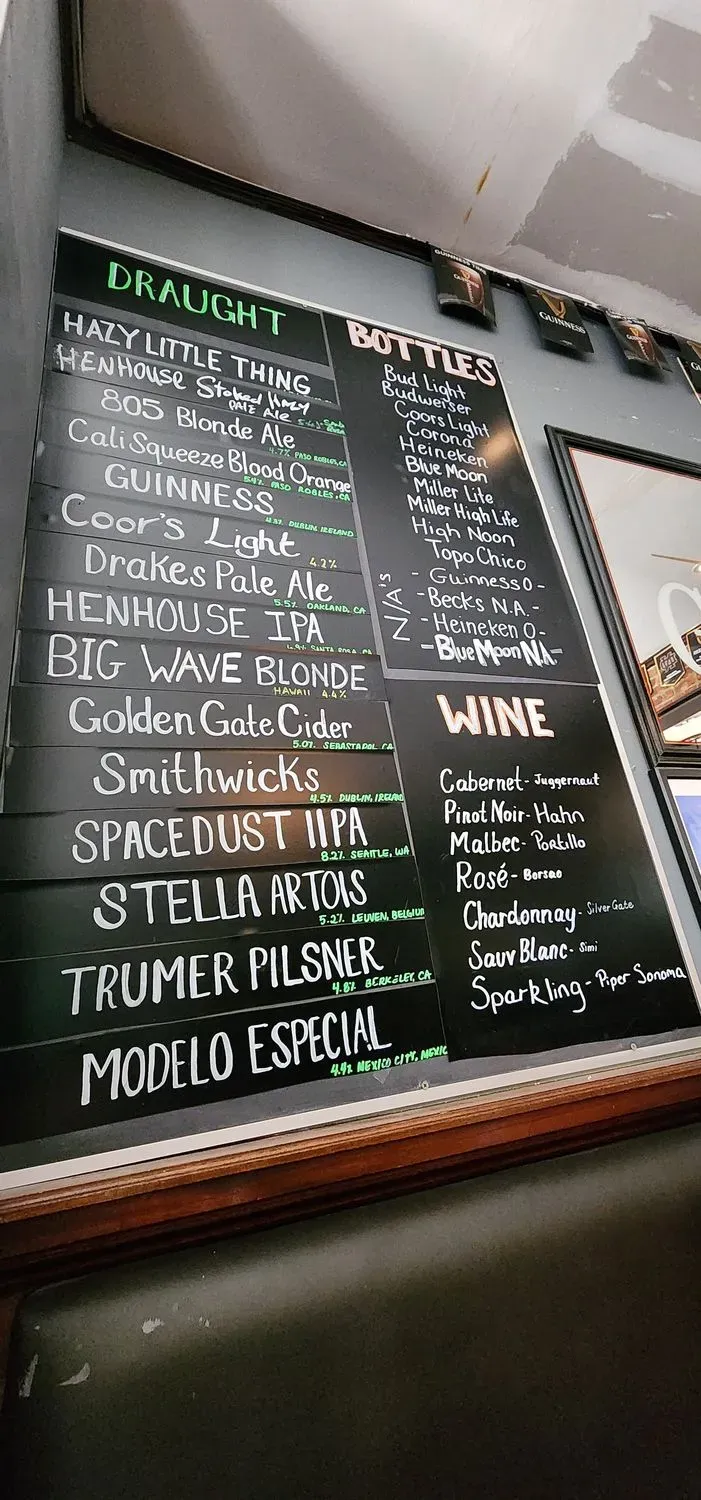 DRAUGHT
HAZY LITTLE THING
HENHOUSE Stoked Hazy
PALE Ale
805 Blonde Ale
4.7% PASO ROBLES, CA
Cali Squeeze Blood Orange
5.4% PASO ROBLES, CA
GUINNESS
DUBLIN IRELAND
Coor's Light
4.2%
Drakes Pale Ale
5.5% OAKLAND, CA
HENHOUSE IPA
SANTA ROSA, CA
BIG WAVE BLONDE
HAWAII 4.4%
Golden Gate Cider
5.0% SEBASTAPOL, CA
Smithwicks
4.5% DUBLIN, IRELAND
SPACEDUST IIPA
8.2% SEATTLE, WA
STELLA ARTOIS
5.2% LEUVEN, BELGIUM
TRUMER PILSNER
4.8% BERKELEY, CA
MODELO ESPECIAL
4.4% MEXICO CITY, MEXIC
BOTTLES
Bud Light
Budweiser
Coors Light
Corona
Heineken
Blue Moon
Miller Lite
Miller High Life
High Noon
Topo Chico
N/A's
- Guinness 0 -
- Becks N.A. -
- Heineken 0 -
- Blue Moon N.A. -
WINE
Cabernet - Juggernaut
Pinot Noir - Hahn
Malbec - Portillo
Rosé - Borsao
Chardonnay - Silver Gate
Sauv Blanc - Simi
Sparkling - Piper Sonoma
GUINNESS TIME
GUINNESS
GUINNESS